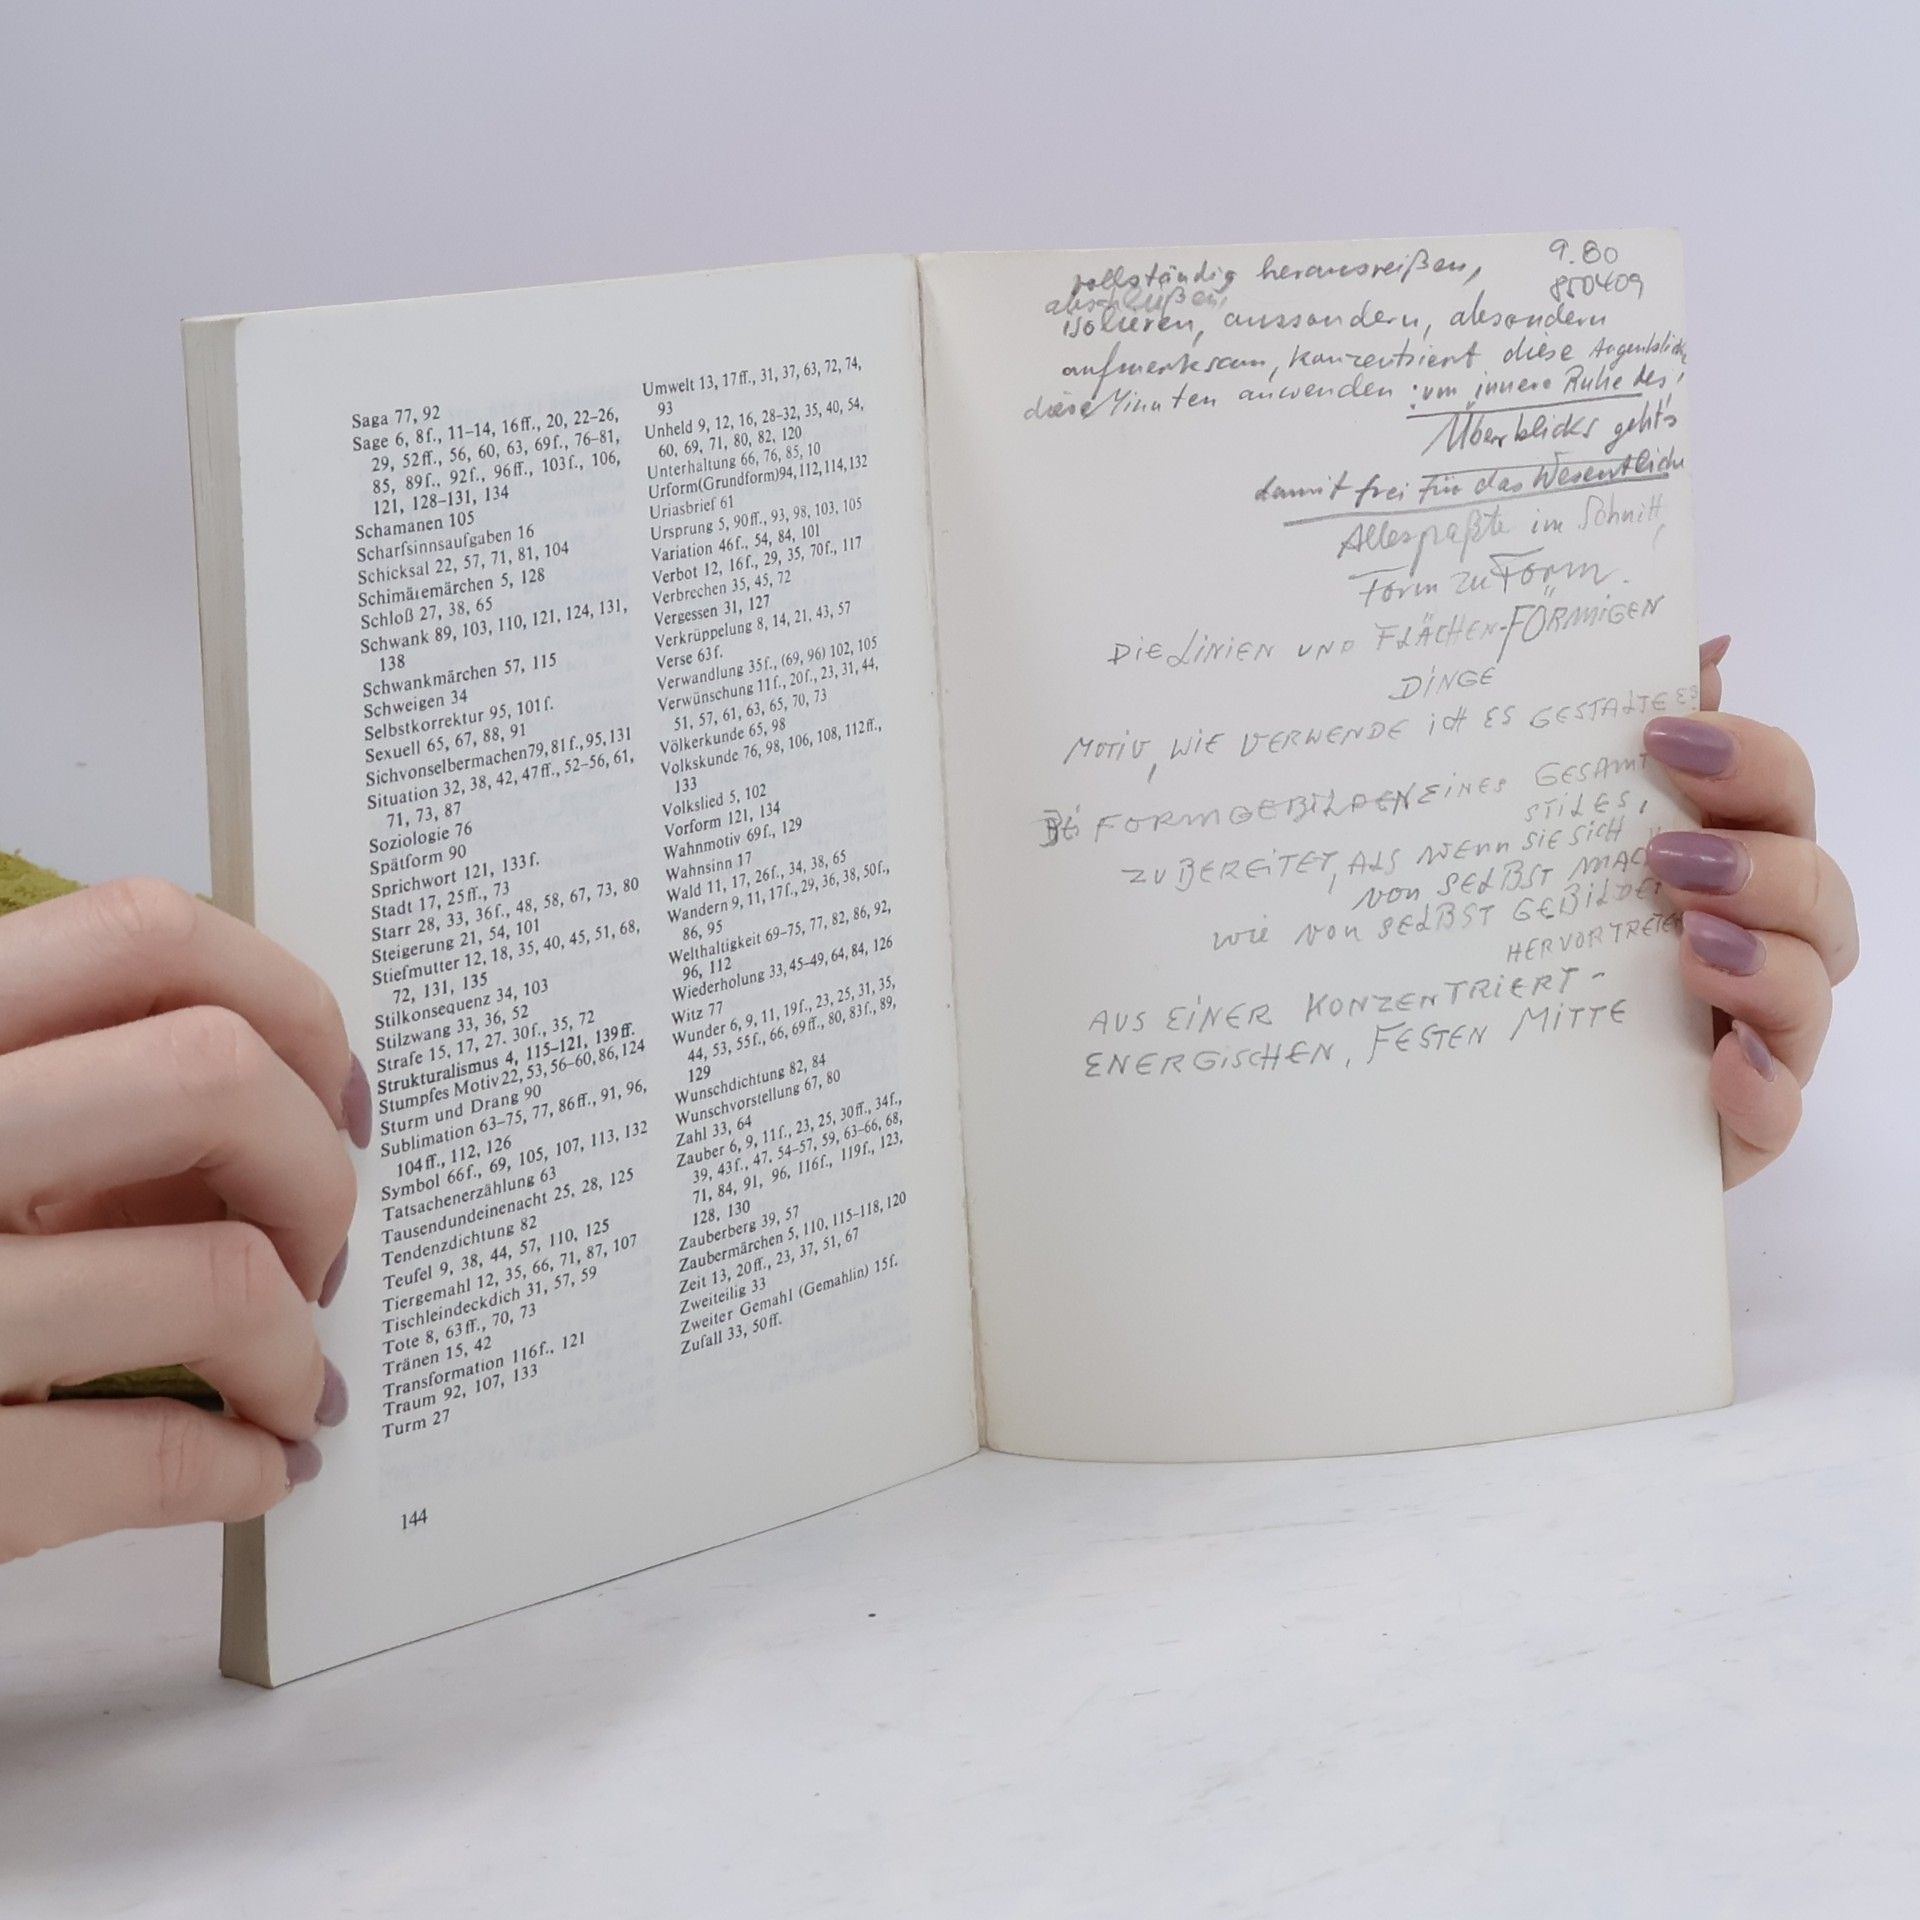 Saga 77, 92
Sage 6, 8f., 11–14, 16ff., 20, 22–26,
29, 52ff., 56, 60, 63, 69f., 76–81,
85, 89f., 92f., 96ff., 103f., 106,
121, 128–131, 134
Schamanen 105
Scharfsinnsaufgaben 16
Schicksal 22, 57, 71, 81, 104
Schimäremärchen 5, 128
Schloß 27, 38, 65
Schwank 89, 103, 110, 121, 124, 131,
138
Schwankmärchen 57, 115
Schweigen 34
Selbstkorrektur 95, 101f.
Sexuell 65, 67, 88, 91
Sichvonselbermachen 79, 81f., 95, 131
Situation 32, 38, 42, 47ff., 52–56, 61,
71, 73, 87
Soziologie 76
Spätform 90
Sprichwort 121, 133f.
Stadt 17, 25ff., 73
Starr 28, 33, 36f., 48, 58, 67, 73, 80
Steigerung 21, 54, 101
Stiefmutter 12, 18, 35, 40, 45, 51, 68,
72, 131, 135
Stilkonsequenz 34, 103
Stilzwang 33, 36, 52
Strafe 15, 17, 27. 30f., 35, 72
Strukturalismus 4, 115–121, 139ff.
Stumpfes Motiv 22, 53, 56–60, 86, 124
Sturm und Drang 90
Sublimation 63–75, 77, 86ff., 91, 96,
104ff., 112, 126
Symbol 66f., 69, 105, 107, 113, 132
Tatsachenerzählung 63
Tausendundeinenacht 25, 28, 125
Tendenzdichtung 82
Teufel 9, 38, 44, 57, 110, 125
Tiergemahl 12, 35, 66, 71, 87, 107
Tischleindeckdich 31, 57, 59
Tote 8, 63ff., 70, 73
Tränen 15, 42
Transformation 116f., 121
Traum 92, 107, 133
Turm 27
144
Umwelt 13, 17ff., 31, 37, 63, 72, 74,
93
Unheld 9, 12, 16, 28–32, 35, 40, 54,
60, 69, 71, 80, 82, 120
Unterhaltung 66, 76, 85, 10
Urform(Grundform)94, 112, 114, 132
Uriasbrief 61
Ursprung 5, 90ff., 93, 98, 103, 105
Variation 46f., 54, 84, 101
Verbot 12, 16f., 29, 35, 70f., 117
Verbrechen 35, 45, 72
Vergessen 31, 127
Verkrüppelung 8, 14, 21, 43, 57
Verse 63f.
Verwandlung 35f., (69, 96) 102, 105
Verwünschung 11f., 20f., 23, 31, 44,
51, 57, 61, 63, 65, 70, 73
Völkerkunde 65, 98
Volkskunde 76, 98, 106, 108, 112ff.,
133
Volkslied 5, 102
Vorform 121, 134
Wahnmotiv 69f., 129
Wahnsinn 17
Wald 11, 17, 26f., 34, 38, 65
Wandern 9, 11, 17f., 29, 36, 38, 50f.,
86, 95
Welthaltigkeit 69–75, 77, 82, 86, 92,
96, 112
Wiederholung 33, 45–49, 64, 84, 126
Witz 77
Wunder 6, 9, 11, 19f., 23, 25, 31, 35,
44, 53, 55f., 66, 69ff., 80, 83f., 89,
129
Wunschdichtung 82, 84
Wunschvorstellung 67, 80
Zahl 33, 64
Zauber 6, 9, 11f., 23, 25, 30ff., 34f.,
39, 43f., 47. 54–57, 59, 63–66, 68,
71, 84, 91, 96, 116f., 119f., 123,
128, 130
Zauberberg 39, 57
Zaubermärchen 5, 110, 115–118, 120
Zeit 13, 20ff., 23, 37, 51, 67
Zweiteilig 33
Zweiter Gemahl (Gemahlin) 15f.
Zufall 33, 50ff.
9.80
850409
vollständig herausreißen,
isolieren, aussondern, absondern
aufmerksam, konzentriert diese Augenblicke
diese Minuten anwenden : um innere Ruhe des
Überblicks geht's
damit frei für das Wesentliche
Alles paßte im Schnitt,
Form zu Form.
DIE LINIEN UND FLÄCHEN-FÖRMIGEN
DINGE
MOTIV, WIE VERWENDE ICH ES GESTALTE ES
FORMGEBILDEN EINES GESAMT
STILES,
ZUBEREITET, ALS WENN SIE SICH
VON SELBST MAC
WIE VON SELBST GEBILDET
HERVORTRETEN
AUS EINER KONZENTRIERT-
ENERGISCHEN, FESTEN MITTE